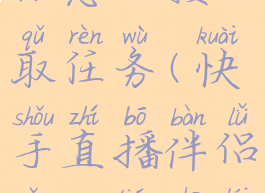 qǔ rèn wù kuài
取任务(快
shǒu zhí bō bàn lǚ
手直播伴侣